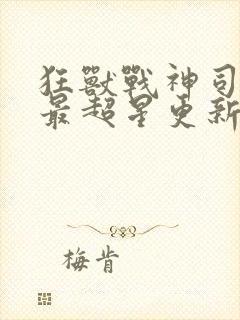 狂獸戰神司
最超星更新
梅肯